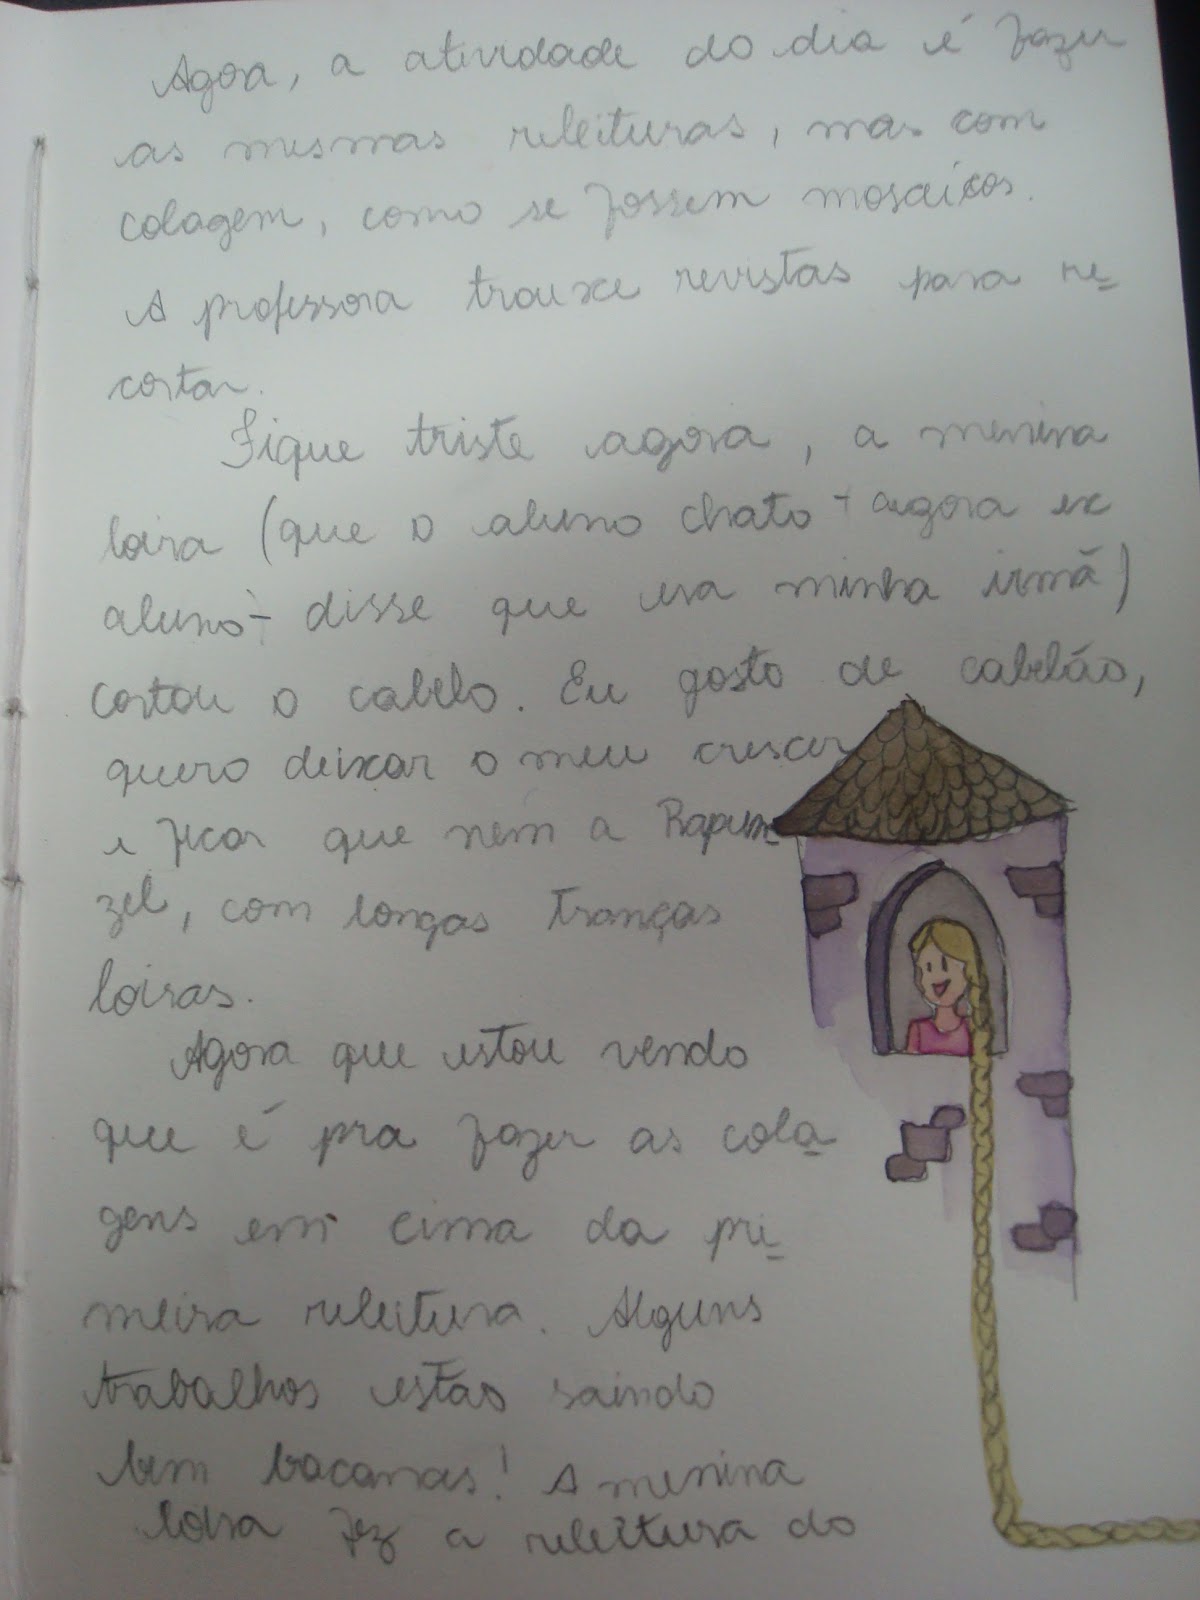 Agora, a atividade do dia é fazer
as mesmas releituras, mas com
colagem, como se fossem mosaicos.
A professora trouxe revistas para re-
cortar.
Fique triste agora, a menina
loira (que o aluno chato - agora ex
aluno - disse que era minha irmã)
cortou o cabelo. Eu gosto de cabelão,
quero deixar o meu crescer
e ficar que nem a Rapun-
zel, com longas tranças
loiras.
Agora que estou vendo
que é pra fazer as cola-
gens em cima da pri-
meira releitura. Alguns
trabalhos estão saindo
bem bacanas! A menina
loira fez a releitura do